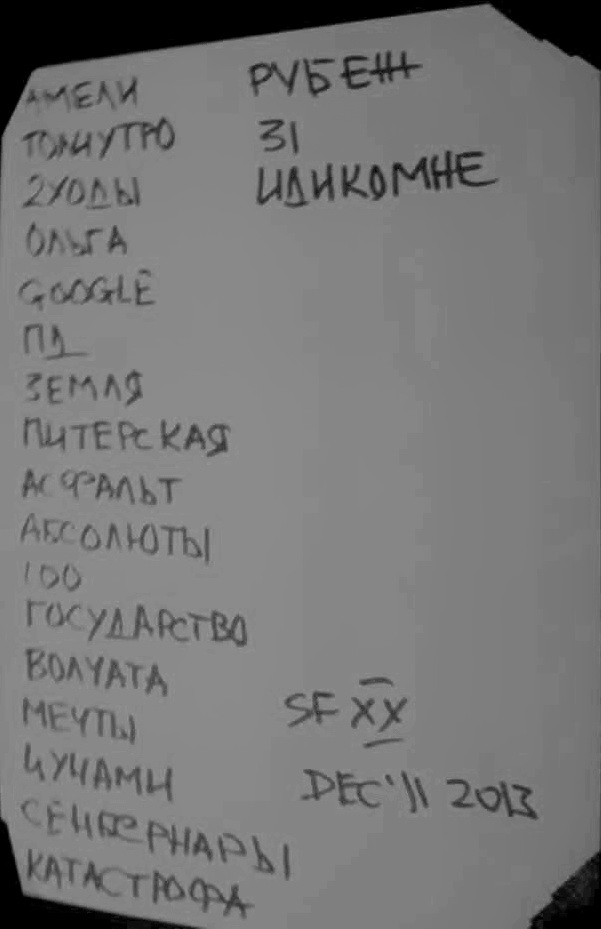 АМЕЛИ
ТОМИУТРО
2ХОДЫ
ОЛЬГА
GOOGLE
ПД
ЗЕМЛЯ
ПИТЕРСКАЯ
АСФАЛЬТ
АБСОЛЮТЫ
100
ГОСУДАРСТВО
ВОЛЧАТА
МЕЧТЫ
ЦУНАМИ
СЕНБЕРНАРЫ
КАТАСТРОФА
РУБЕЖ
31
ИДИКОМНЕ
SF XX
DEC'11 2013